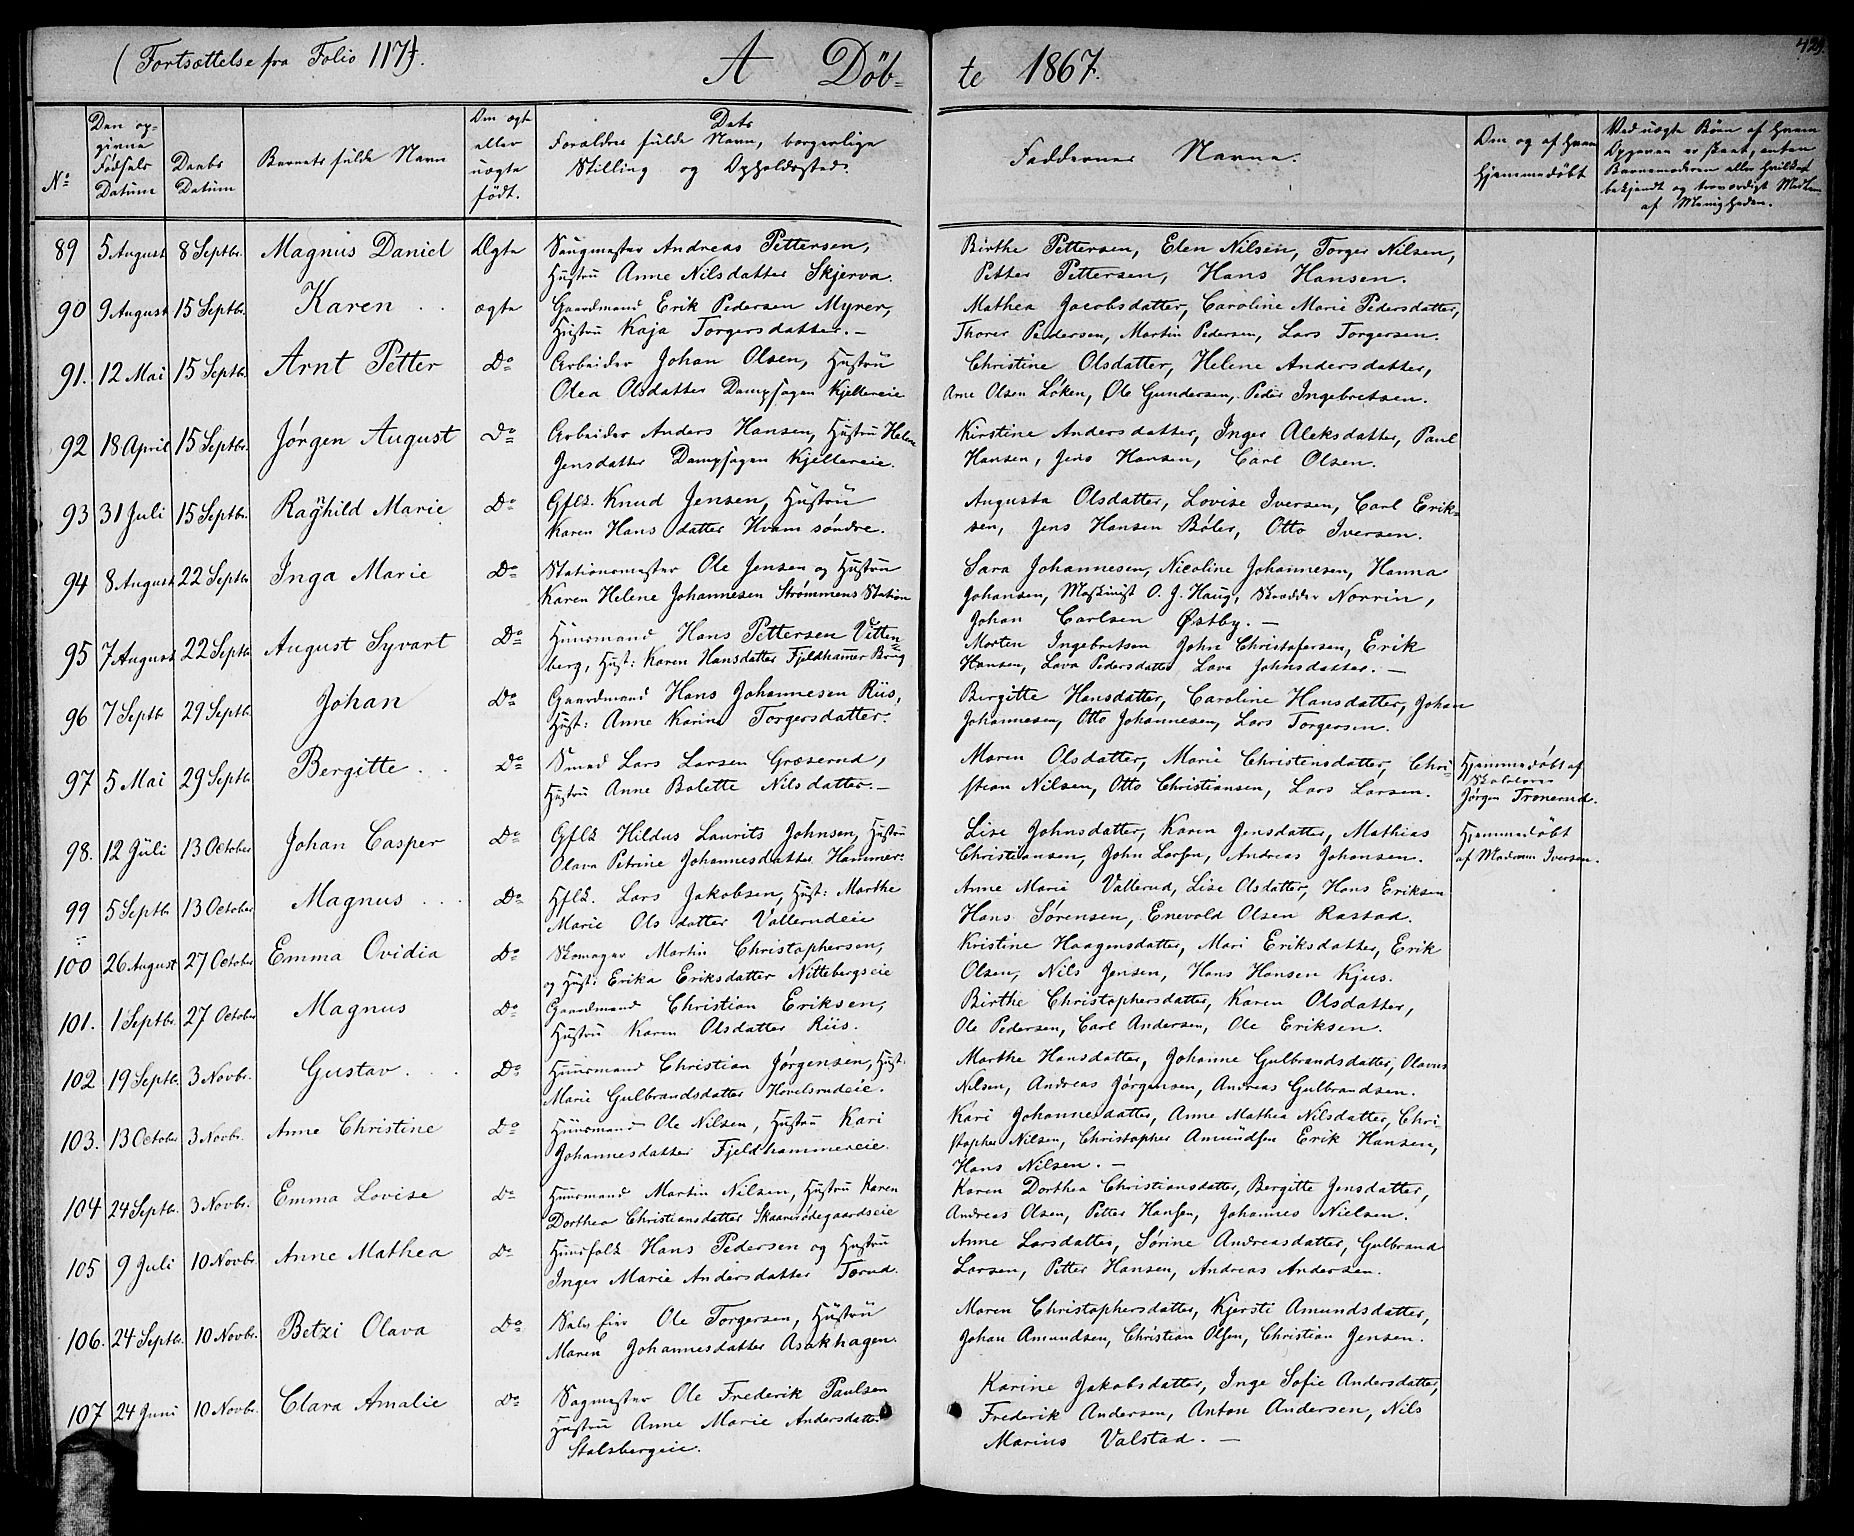 (Fortsættelse fra Folio 117).
A Döb- te 1867.
429.
No
Den opgivne Fødsels Datum
Daabs Datum
Barnets fulde Navn
Om ægte eller uægte født.
Dets Forældres fulde Navn, borgerlige Stilling og Opholdssted.
Faddernes Navne.
Om og af Hvem Hjemmedøbt
Ved uægte Børn af Hvem Opgaven er skeet, enten Barnemoderen eller Hvilket bekjendt og troværdigt Medlem af Menigheden.
89 5 August 8 Septbr. Magnus Daniel Ægte Saugmester Andreas Pettersen, Birthe Pettersen, Elen Nilsen, Torger Nilsen,
Hustru Anne Nilsdatter Skjerva. Petter Pettersen, Hans Hansen.
90 9 August 15 Septbr. Karen ægte Gaardmand Erik Pedersen Myrer, Mathea Jacobsdatter, Caroline Marie Pedersdatter,
Hustru Kaja Torgersdatter.- Thorer Pedersen, Martin Pedersen, Lars Torgersen.
91. 12 Mai 15 Septbr. Arnt Petter Do Arbeider Johan Olsen, Hustru Christine Olsdatter, Helene Andersdatter,
Olea Olsdatter Dampsagen Kjellereie Arne Olsen Løken, Ole Gundersen, Peder Ingebretsen.
92 18 April 15 Septbr. Jørgen August Do Arbeider Anders Hansen, Hustru Helene Kirstine Andersdatter, Inger Aleksdatter, Paul
Jensdatter Dampsagen Kjellereie. Hansen, Jens Hansen, Carl Olsen.
93 31 Juli 15 Septbr. Raghild Marie Do Gflk. Knud Jensen, Hustru Augusta Olsdatter, Lovise Iversen, Carl Erik-
Karen Hansdatter Hvam søndre. sen, Jens Hansen Bøler, Otto Iversen.
94 8 August 22 Septbr Inga Marie Do Stationsmester Ole Jensen og Hustru Sara Johannesen, Nicoline Johannesen, Hanna
Karen Helene Johannesen Strømmens Station Johansen, Maskinist O. J. Haug, Skrædder Norrin,
Johan Carlsen Østby.-
95 7 August 22 Septb August Syvart Do Huusmand Hans Pettersen Vitten- Morten Ingebretsen John Christofersen, Erik
berg, Hust: Karen Hansdatter Fjeldhamer Brug Hansen, Lava Pedersdatter Lava Johnsdatter.-
96 7 Septb 29 Septb. Johan Do Gaardmand Hans Johannesen Riis, Bergitte Hansdatter, Caroline Hansdatter, Johan
Hust: Anne Karine Torgersdatter. Johannesen, Otto Johannesen, Lars Torgersen.
97 5 Mai 29 Septb. Bergitte Do Smed Lars Larsen Græserud, Maren Olsdatter, Marie Christensdatter, Chri- Hjemmedøbt af
Hustru Anne Bolette Nilsdatter.- stian Nilsen, Otto Christiansen, Lars Larsen. Skolelærer Jørgen Tronerud.
98. 12 Juli 13 October Johan Casper Do Gflk Hildus Laurits Johnsen, Hustru Lise Johnsdatter, Karen Jensdatter, Mathias Hjemmedøbt
Olava Petrine Johannesdatter Hammer. Christiansen, John Larsen, Andreas Johansen. af Madam Iversen.
99 5 Septb 13 October Magnus Do Hflk. Lars Jakobsen, Hust: Marthe Anne Marie Vallerud, Lise Olsdatter, Hans Eriksen
Marie Olsdatter Vallerudeie Hans Sørensen, Enevold Olsen Rastad.
100 26 August 27 October Emma Ovidia Do Skomager Martin Christophersen, Kristine Haagensdatter, Mari Eriksdatter, Erik
og Hust: Erika Eriksdatter Nittebergseie Olsen, Nils Jensen, Hans Hansen Kjus.
101. 1 Septbr. 27 October Magnus Do Gaardmand Christian Eriksen, Birthe Christophersdatter, Karen Olsdatter,
Hustru Karen Olsdatter Riis. Ole Pedersen, Carl Andersen, Ole Eriksen.
102 19 Septbr. 3 Novbr. Gustav Do Huusmand Christian Jørgensen, Hust: Marthe Hansdatter, Johanne Gulbrandsdatter, Olavus
Marie Gulbrandsdatter Hovelsrudeie. Nilsen, Andreas Jørgensen, Andreas Gulbrandsen.
103. 13 October 3 Novbr. Anne Christine Do Huusmand Ole Nilsen, Hustru Kari Kari Johannesdatter, Anne Mathea Nilsdatter, Chri-
Johannesdatter Fjeldhammereie. stopher Nilsen, Christopher Amundsen Erik Hansen,
Hans Nilsen.-
104 24 Septbr. 3 Novbr. Emma Lovise Do Huusmand Martin Nilsen, Hustru Karen Karen Dorthea Christiansdatter, Bergitte Jensdatter,
Dorthea Christiansdatter Skaarerødegaardseie Andreas Olsen, Petter Hansen, Johannes Nielsen.
105 9 Juli 10 Novbr. Anne Mathea Do Huusfolk Hans Pedersen og Hustru Anne Larsdatter, Sørine Andreasdatter, Gulbrand
Inger Marie Andersdatter Torud. Larsen, Petter Hansen, Andreas Andersen.
106. 24 Septbr. 10 Novbr. Betzi Olava Do Selv Eier Ole Torgersen, Hustru Maren Christophersdatter, Kjersti Amundsdatter,
Maren Johannesdatter Asakhagen. Johan Amundsen, Christian Olsen, Christian Jensen.
107 24 Juni 10 Novbr. Clara Amalie Do Sagmester Ole Frederik Paulsen Karine Jakobsdatter, Inge Sofie Andersdatter,
Hustru Anne Marie Andersdatter Frederik Andersen, Anton Andersen, Nils
Stalsbergeie. Marius Valstad.-